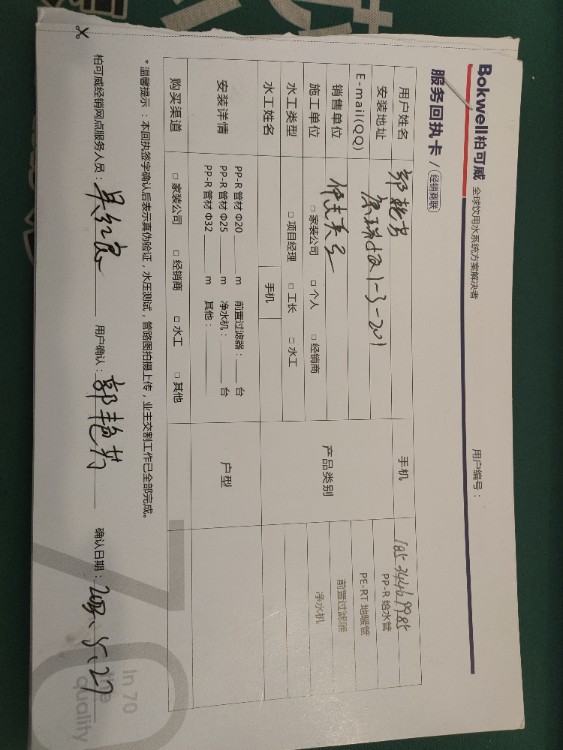 Bokwell柏可威 全球饮用水系统方案解决者
服务回执卡 / 经销商联
用户编号：
用户姓名 郭艳芳 手机 185-3446-9985
安装地址 1-3-201
E-mail(QQ)
销售单位
施工单位 □ 家装公司 □ 个人 □ 经销商
水工类型 □ 项目经理 □ 工长 □ 水工
水工姓名 手机
产品类别 PP-R 给水管
PE-RT 地暖管
前置过滤器
净水机
安装详情 PP-R 管材 Φ20 m 前置过滤器： 台
PP-R 管材 Φ25 m 净水机： 台
PP-R 管材 Φ32 m 其他：
户型
购买渠道 □ 家装公司 □ 经销商 □ 水工 □ 其他
* 温馨提示：本回执签字确认后表示真伪验证，水压测试，管路图拍摄上传，业主交割工作已全部完成。
柏可威经销网点服务人员： 用户确认：郭艳芳 确认日期：5.27
In 70
quality